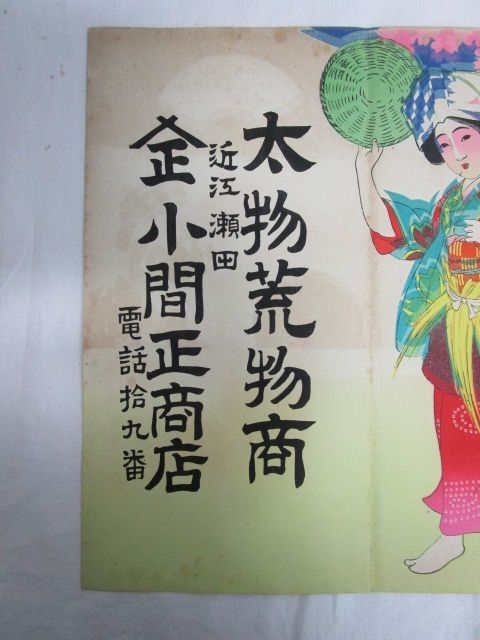 太物荒物商
近江瀬田
小間正商店
電話拾九番